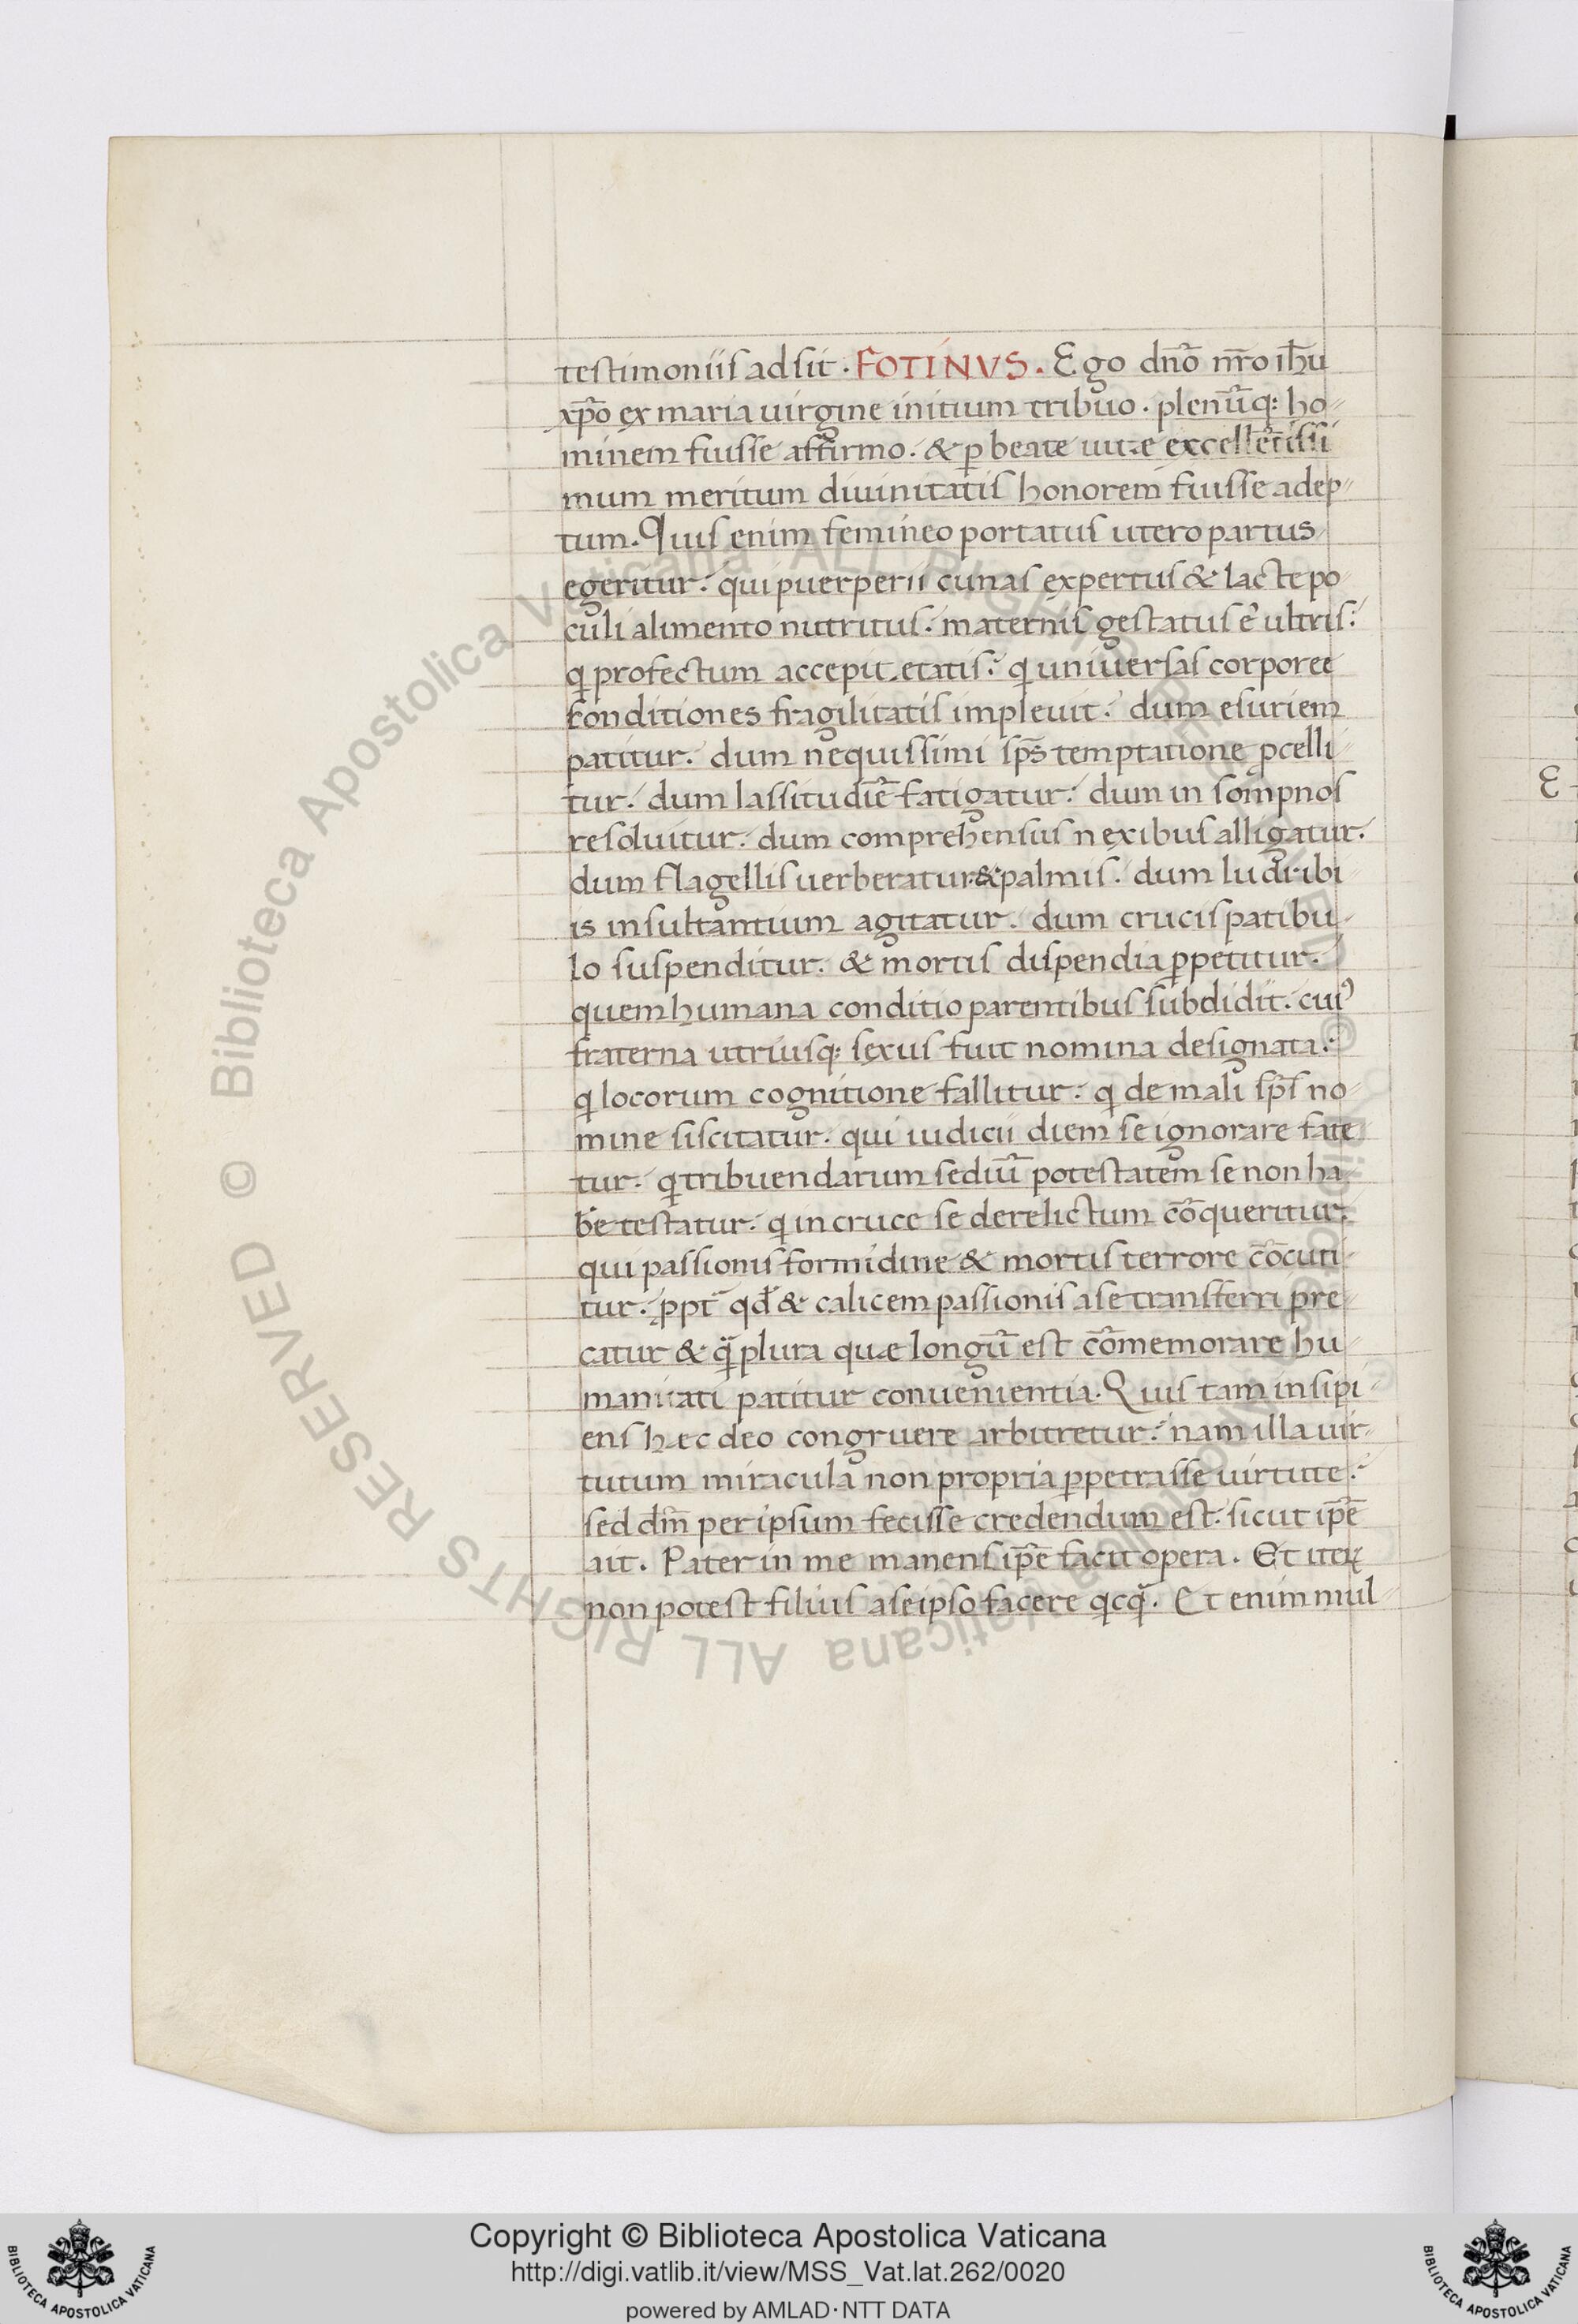 testimoniis adsit . FOTINVS . Ego dn̄o nr̄o ih̄u
xp̄o ex maria uirgine initium tribuo . plenūq; ho-
minem fuisse affirmo . & ꝑ beate uitæ excellētissi
mum meritum diuinitatis honorem fuisse adep-
tum . Quis enim femineo portatus utero partus
egeritur . qui puerperii cunas expertus & lacte po
culi alimento nutritus . maternis gestatus ē ultris .
q profectum accepit etatis . q uniuersas corporee
conditiones fragilitatis impleuit . dum esuriem
patitur . dum nequissimi sp̄s temptatione ꝓcelli
tur . dum lassitudiē fatigatur . dum in sompnos
resoluitur . dum comprehensus nexibus alligatur .
dum flagellis uerberatur & palmis . dum ludribi-
is insultantium agitatur . dum crucis patibu-
lo suspenditur . & mortis dispendia ꝑpetitur .
quem humana conditio parentibus subdidit . cuiꝰ
fraterna utriusq; sexus fuit nomina designata .
q locorum cognitione fallitur . q de mali sp̄s no-
mine siscitatur . qui iudicii diem se ignorare fate
tur . q tribuendarum sediū potestatem se non ha-
b̄e testatur . q in cruce se derelictum cōqueritur .
qui passionis formidine & mortis terrore cōcuti-
tur . ꝓpt̄ qd̄ & calicem passionis a se transferri pre-
catur & q̄ plura quæ longū est cōmemorare hu-
manitati patitur conuenientia . Quis tam insipi-
ens hæc deo congruere arbitretur . nam illa uir-
tutum miracula non propria ꝑpetrasse uirtute .
sed dm̄ per ipsum fecisse credendum est . sicut ip̄e
ait . Pater in me manens ip̄e facit opera . Et iteꝝ
non potest filius a se ipso facere qcq̄ . Et enim mul-
E
© Biblioteca Apostolica Vaticana ALL RIGHTS RESERVED © Biblioteca Apostolica Vaticana ALL RIGHTS RESERVED
Copyright © Biblioteca Apostolica Vaticana
http://digi.vatlib.it/view/MSS_Vat.lat.262/0020
powered by AMLAD·NTT DATA
BIBLIOTECA APOSTOLICA VATICANA
BIBLIOTECA APOSTOLICA VATICANA